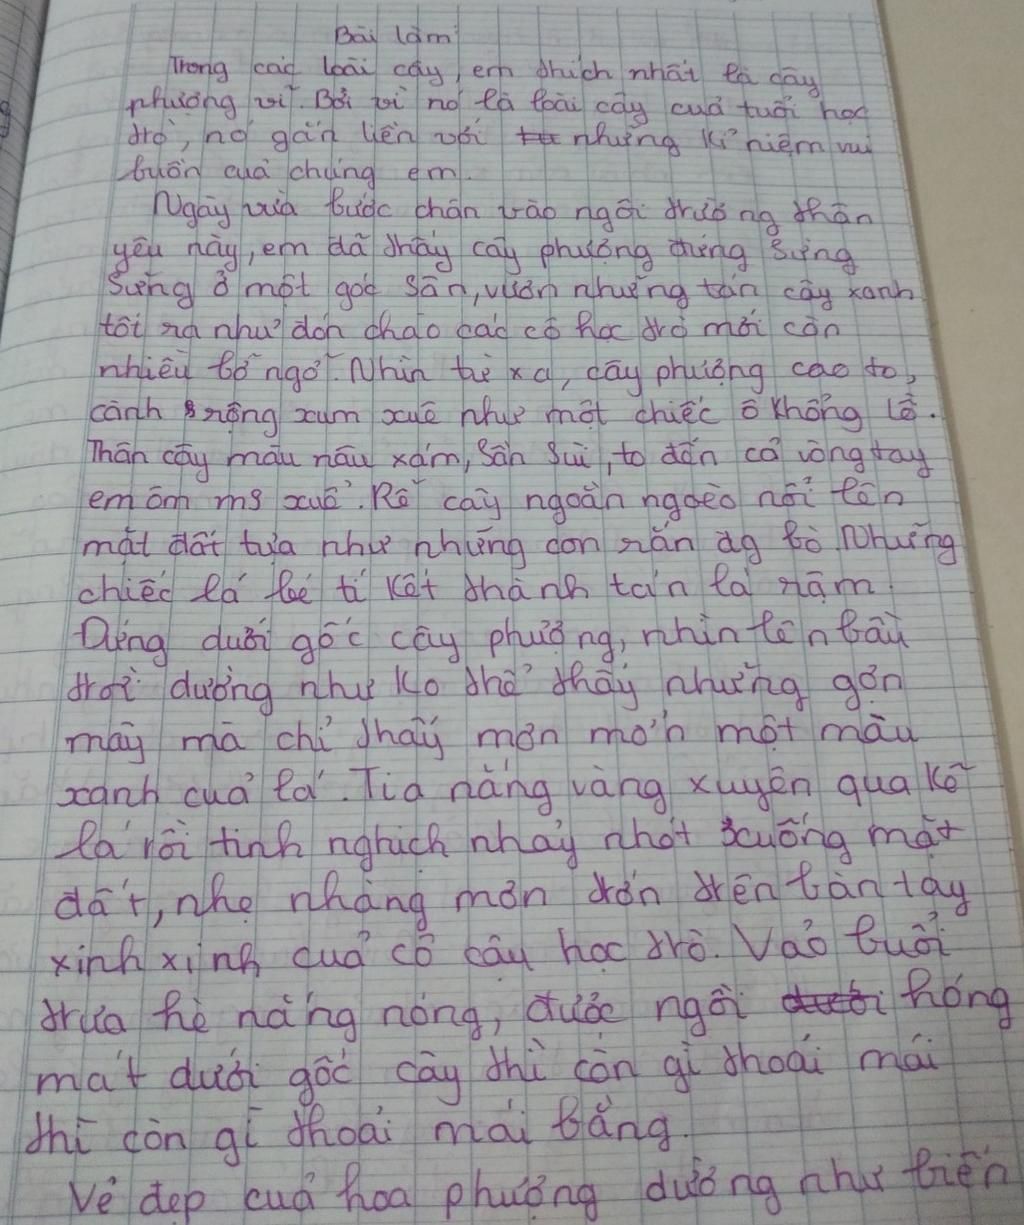 Bài làm
Trong các loài cây, em thích nhất là cây
phượng vĩ. Bởi vì nó là loài cây của tuổi học
trò, nó gắn liền với những kỉ niệm vui
buồn của chúng em.
Ngày vừa bước chân vào ngôi trường thân
yêu này, em đã thấy cây phượng đứng sừng
sững ở một góc sân, vươn những tán cây xanh
tốt ra như đón chào các cô học trò mới còn
nhiều bỡ ngỡ. Nhìn từ xa, cây phượng cao to,
cành rộng xum xuê như một chiếc ô khổng lồ.
Thân cây màu nâu xám, sần sùi, to đến cả vòng tay
em ôm ms xuể. Rễ cây ngoằn ngoèo nổi lên
mặt đất tựa như những con rắn đg bò. Những
chiếc lá bé tí kết thành tán lá rậm.
Đứng dưới gốc cây phượng, nhìn lên bầu
trời dường như ko thể thấy những gợn
mây mà chỉ thấy mơn mởn một màu
xanh của lá. Tia nắng vàng xuyên qua kẽ
lá rồi tinh nghịch nhảy nhót xuống mặt
đất, nhẹ nhàng mơn trớn trên bàn tay
xinh xinh của cô cậu học trò. Vào buổi
trưa hè nắng nóng, được ngồi hóng
mát dưới gốc cây thì còn gì thoải mái
thì còn gì thoải mái bằng.
Vẻ đẹp của hoa phượng dường như biến